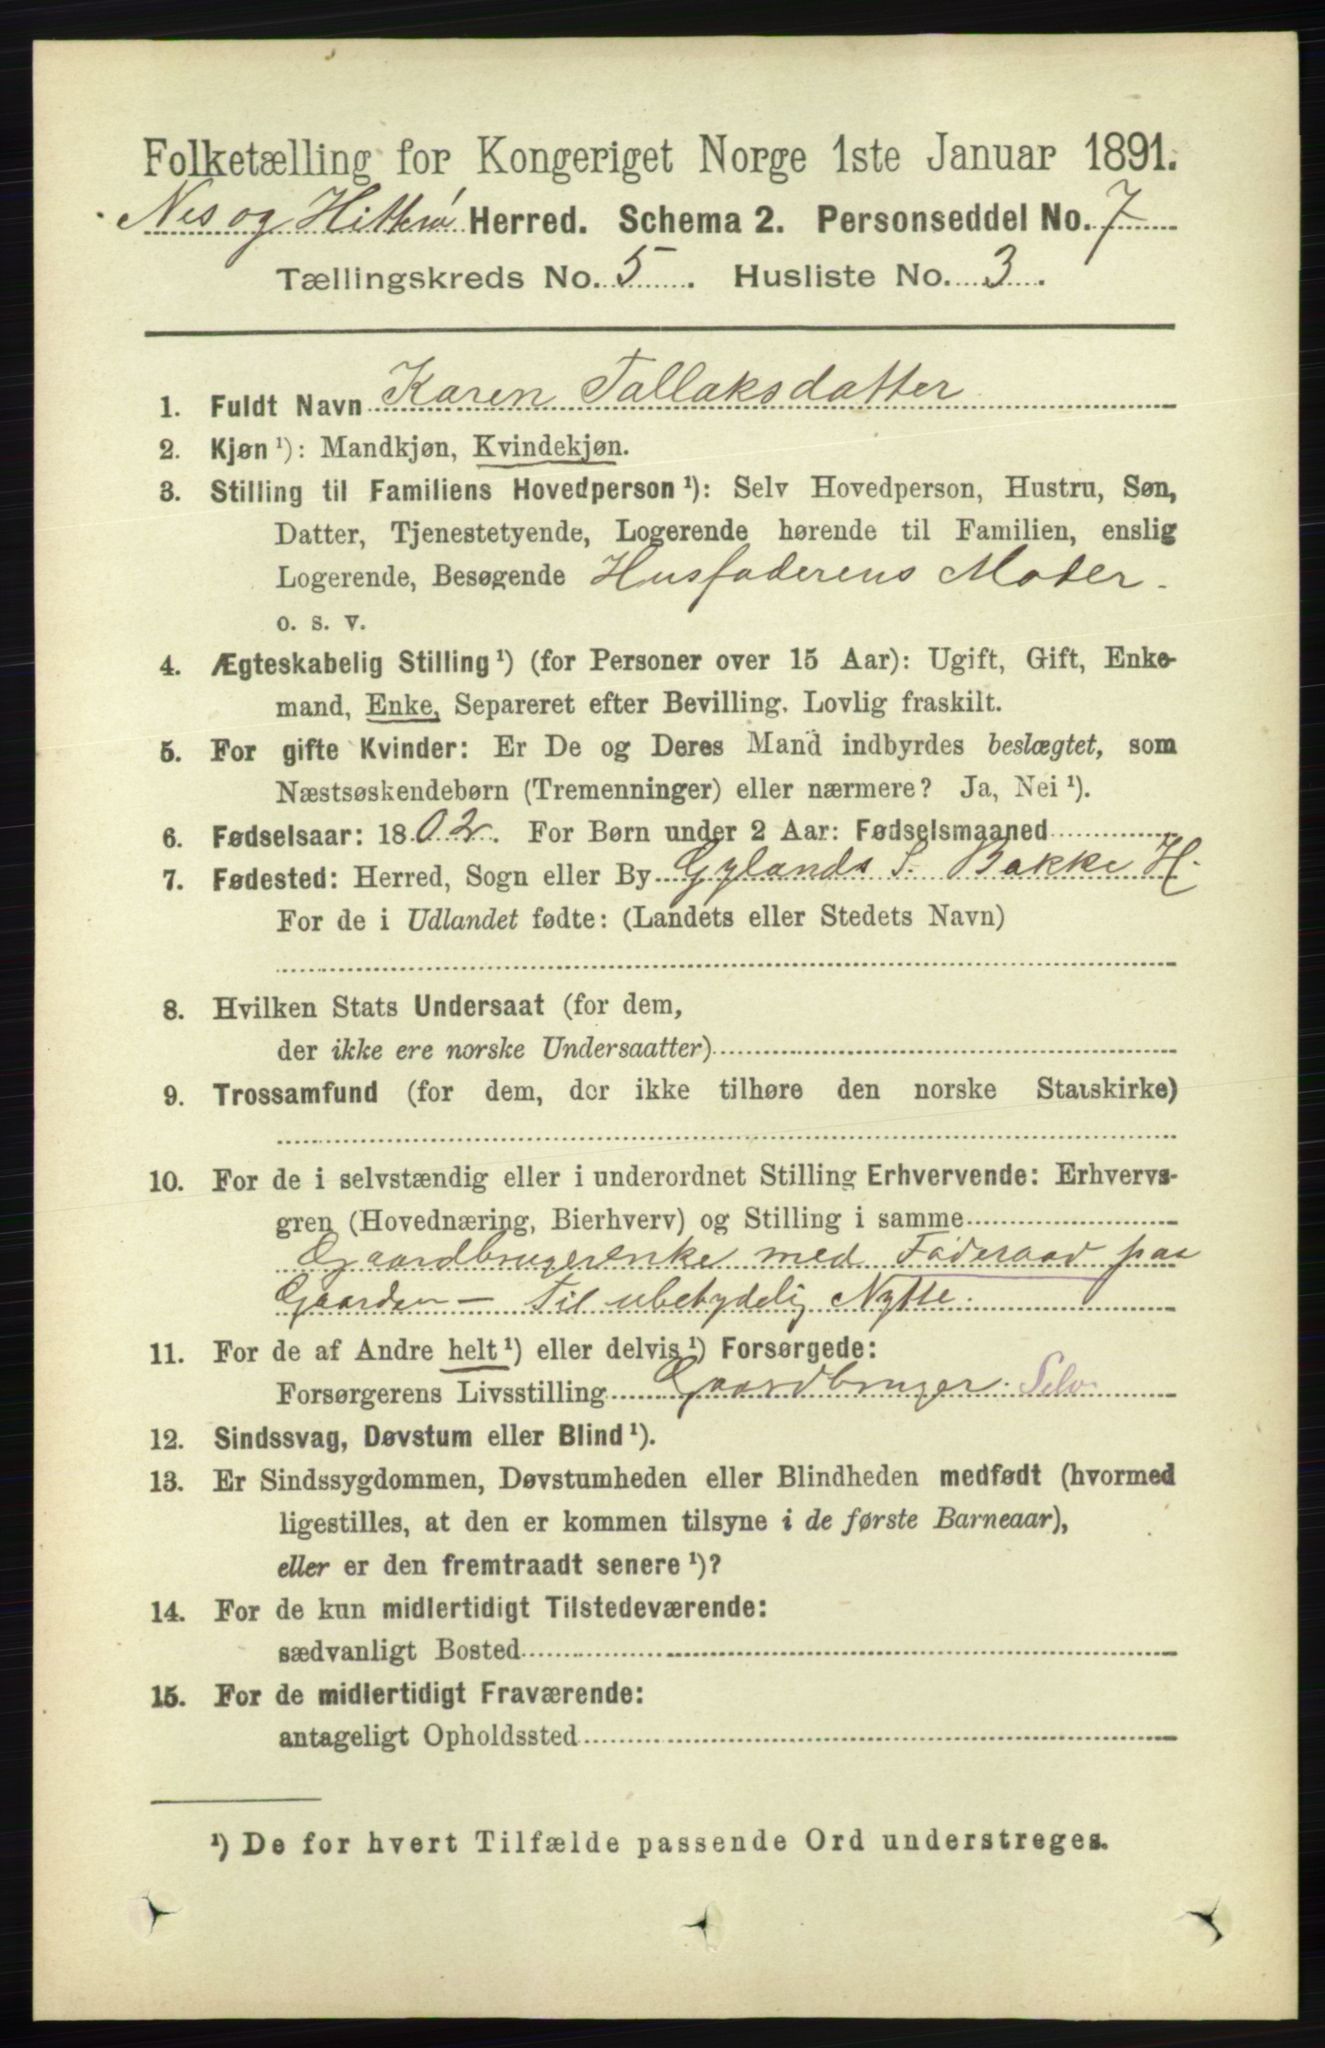 Folketælling for Kongeriget Norge 1ste Januar 1891.
Nes og Hitterø Herred. Schema 2. Personseddel No. 7
Tællingskreds No. 5. Husliste No. 3.
1. Fuldt Navn Karen Tallaksdatter
2. Kjøn ¹): Mandkjøn, Kvindekjøn.
3. Stilling til Familiens Hovedperson ¹): Selv Hovedperson, Hustru, Søn,
Datter, Tjenestetyende, Logerende hørende til Familien, enslig
Logerende, Besøgende Husfaderens Moder.
o. s. v.
4. Ægteskabelig Stilling ¹) (for Personer over 15 Aar): Ugift, Gift, Enke-
mand, Enke, Separeret efter Bevilling. Lovlig fraskilt.
5. For gifte Kvinder: Er De og Deres Mand indbyrdes beslægtet, som
Næstsøskendebørn (Tremenninger) eller nærmere? Ja, Nei ¹).
6. Fødselsaar: 1802. For Børn under 2 Aar: Fødselsmaaned
7. Fødested: Herred, Sogn eller By Gylands S. Bakke H.
For de i Udlandet fødte: (Landets eller Stedets Navn)
8. Hvilken Stats Undersaat (for dem,
der ikke ere norske Undersaatter)
9. Trossamfund (for dem, der ikke tilhøre den norske Statskirke)
10. For de i selvstændig eller i underordnet Stilling Erhvervende: Erhvervs-
gren (Hovednæring, Bierhverv) og Stilling i samme
Gaardbrugerenke med Føderaad paa
Gaarden - til ubetydelig Nytte.
11. For de af Andre helt ¹) eller delvis ¹) Forsørgede:
Forsørgerens Livsstilling Gaardbruger. Selv.
12. Sindssvag, Døvstum eller Blind ¹).
13. Er Sindssygdommen, Døvstumheden eller Blindheden medfødt (hvormed
ligestilles, at den er kommen tilsyne i de første Barneaar),
eller er den fremtraadt senere ¹)?
14. For de kun midlertidigt Tilstedeværende:
sædvanligt Bosted
15. For de midlertidigt Fraværende:
antageligt Opholdssted
¹) De for hvert Tilfælde passende Ord understreges.